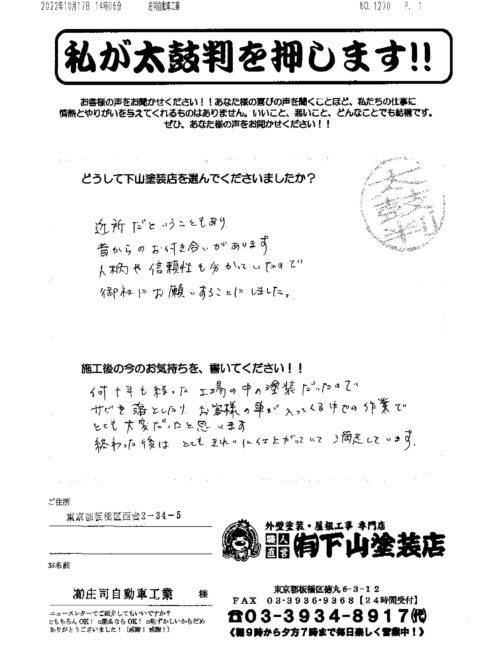 2022年10月17日 14時06分 庄司自動車工業 NO.1270 P. 1
私が太鼓判を押します!!
お客様の声をお聞かせください！！あなた様の喜びの声を聞くことほど、私たちの仕事に
情熱とやりがいを与えてくれるものはありません。いいこと、悪いこと、どんなことでも結構です。
ぜひ、あなた様の声をお聞かせください！！
どうして下山塗装店を選んでくださいましたか？
太鼓判
近所だということもあり
昔からのお付き合いがあります
人柄や信頼性も分かっていたので
御社にお願いすることにしました。
施工後の今のお気持ちを、書いてください！！
何十年も経った工場の中の塗装だったので
サビを落としたり お客様の車が入ってくる中での作業で
とても大変だったと思います
終わった後は とてもきれいに仕上がっていて 満足しています。
ご住所
東京都板橋区西台2-34-5
お名前
㈲庄司自動車工業 様
ニュースレターでご紹介してもいいですか？
□もちろんOK！ □匿名ならOK！ □恥ずかしいからだめ
ありがとうございました！（感謝！感謝！）
外壁塗装・屋根工事 専門店
職人直営 ㈲下山塗装店
東京都板橋区徳丸6-3-12
FAX 03-3936-9368【24時間受付】
☎03-3934-8917㈹
《朝9時から夕方7時まで毎日楽しく営業中！》